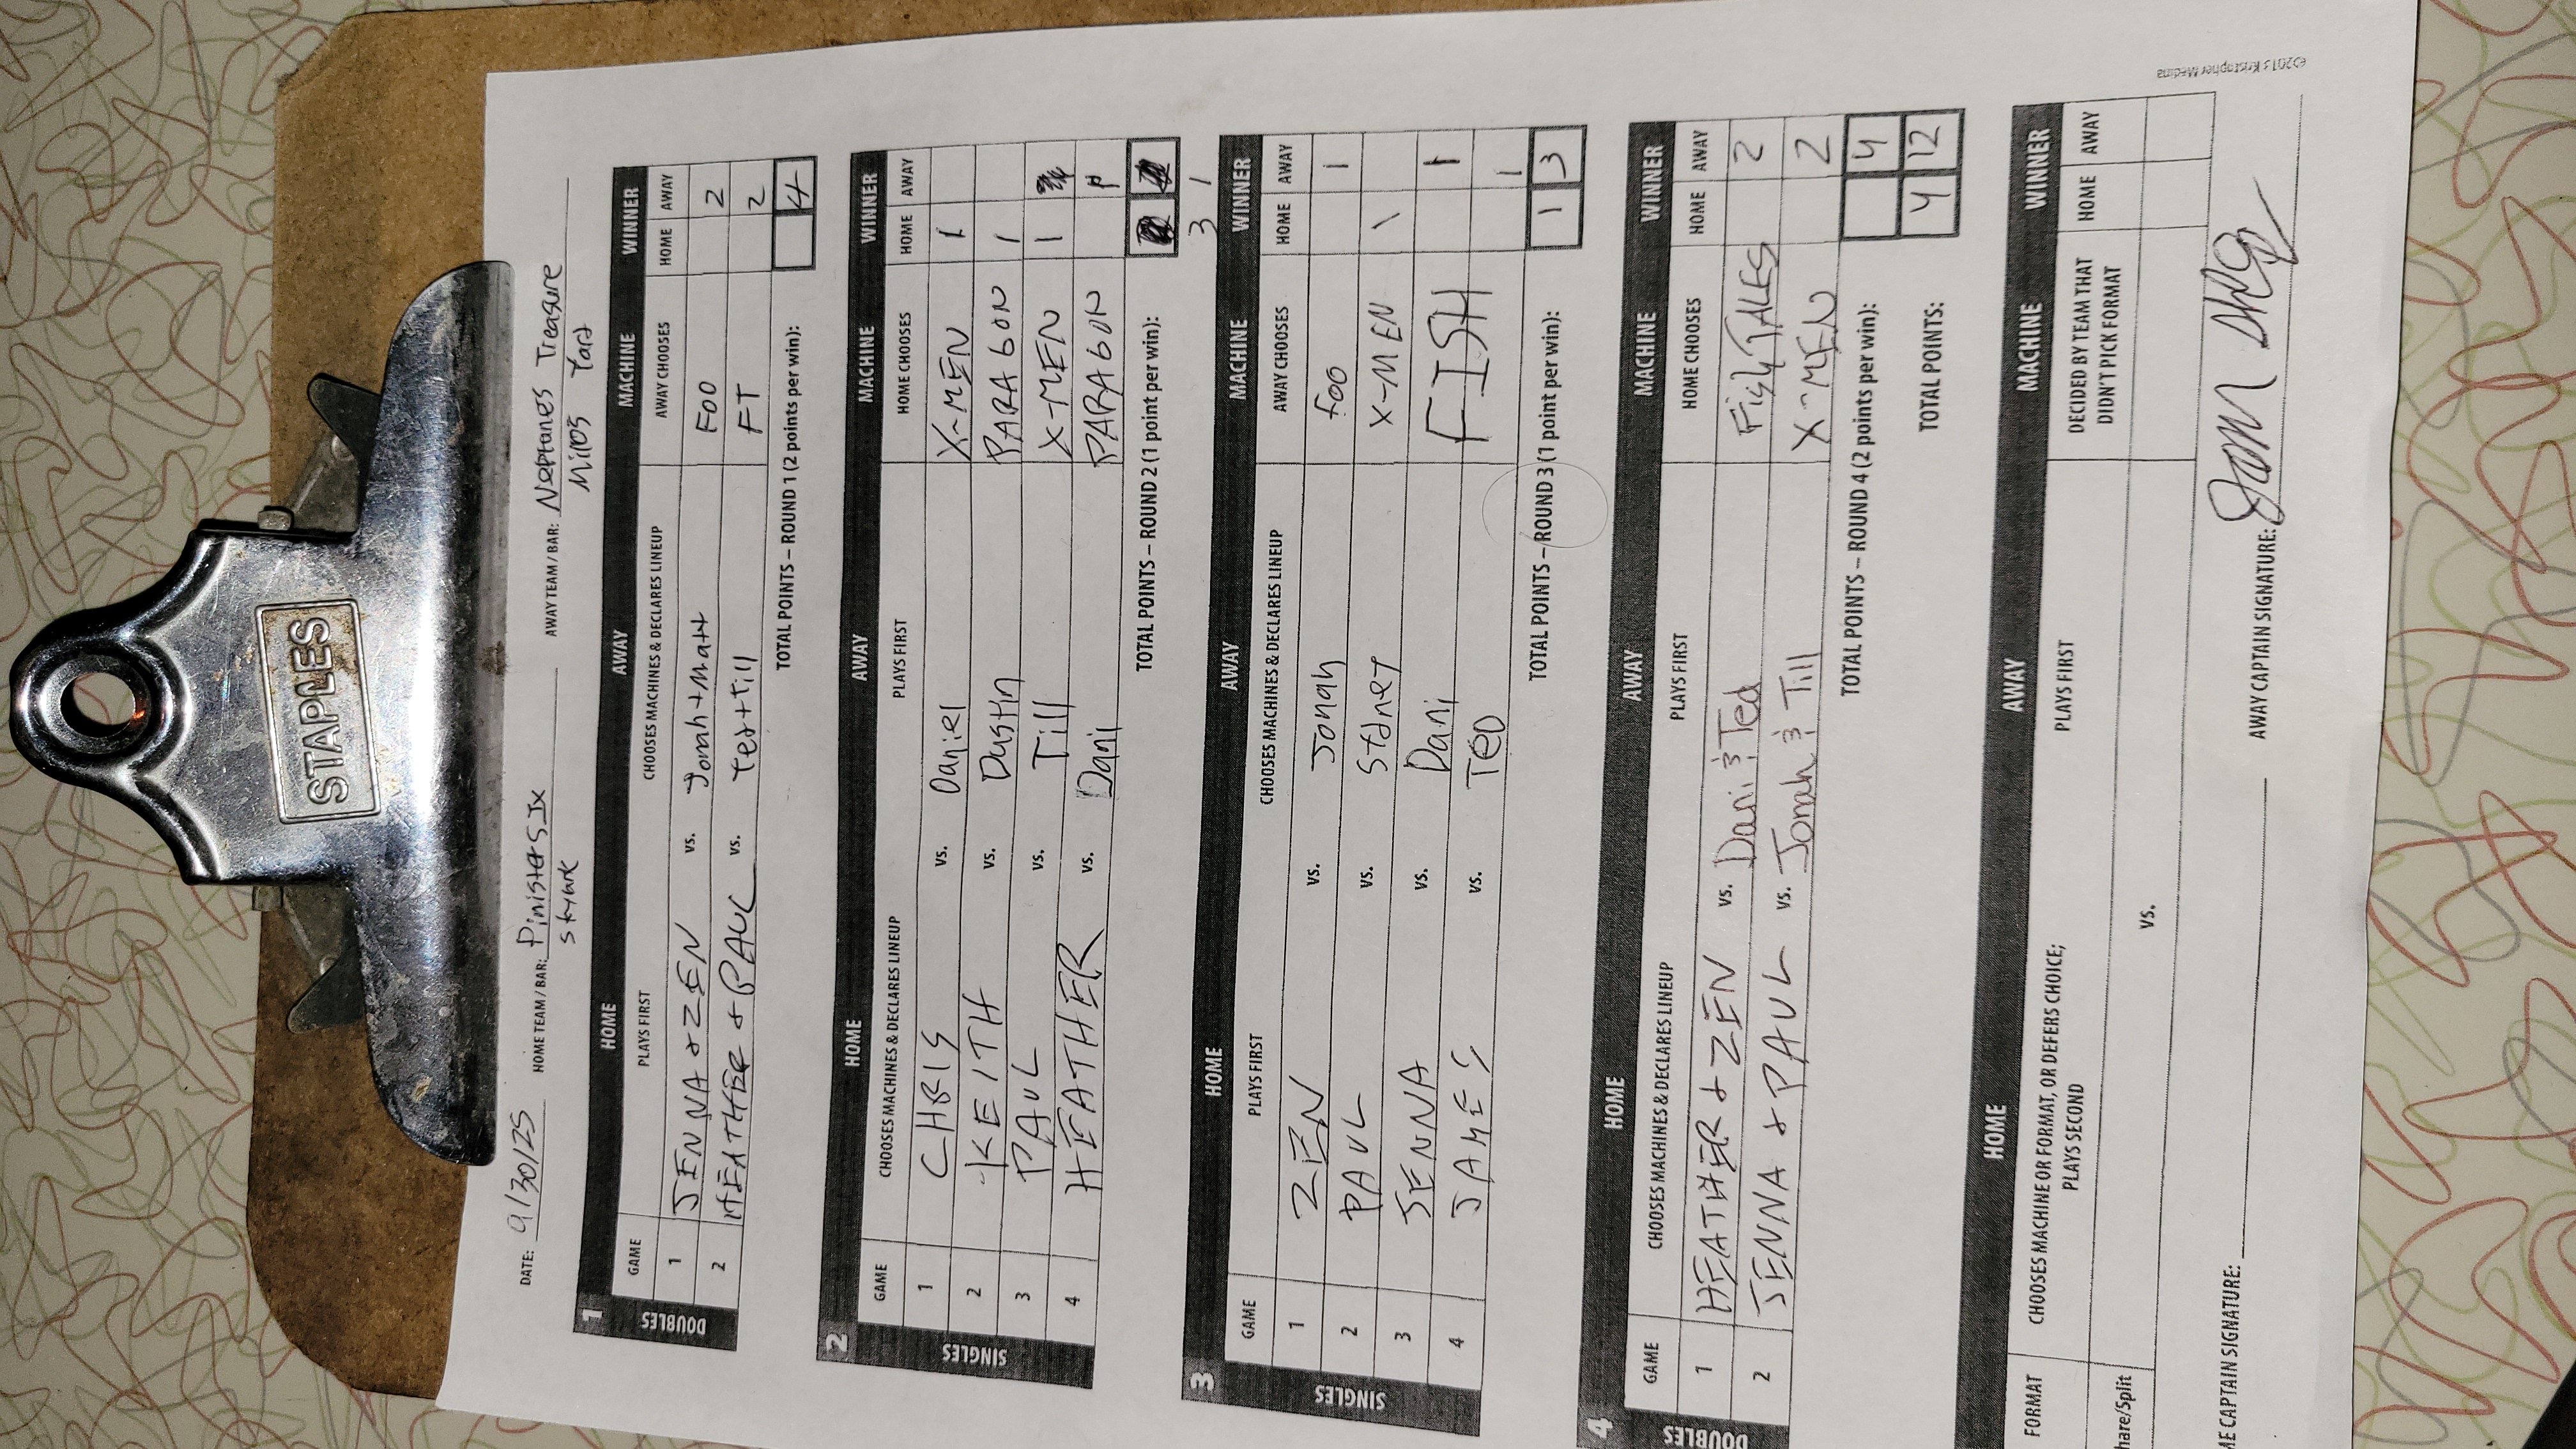 STAPLES
DATE: 9/30/25 HOME TEAM / BAR: Pinisters Ix AWAY TEAM / BAR: Neptunes Treasure
Skylark Milos Yard
1 HOME AWAY MACHINE WINNER
GAME PLAYS FIRST CHOOSES MACHINES & DECLARES LINEUP AWAY CHOOSES HOME AWAY
DOUBLES
1 JENNA & ZEN vs. Jonah + Matt FOO 2
2 HEATHER & PAUL vs. Ted + Till FT 2
TOTAL POINTS – ROUND 1 (2 points per win): 4
2 HOME AWAY MACHINE WINNER
GAME CHOOSES MACHINES & DECLARES LINEUP PLAYS FIRST HOME CHOOSES HOME AWAY
SINGLES
1 CHRIS vs. Daniel X-MEN 1
2 KEITH vs. Dustin PARAGON 1
3 PAUL vs. Till X-MEN 1
4 HEATHER vs. Dani PARAGON 1
TOTAL POINTS – ROUND 2 (1 point per win):
3 1
3 HOME AWAY MACHINE WINNER
GAME PLAYS FIRST CHOOSES MACHINES & DECLARES LINEUP AWAY CHOOSES HOME AWAY
SINGLES
1 ZEN vs. Jonah foo 1
2 PAUL vs. Sydney X-MEN 1
3 JENNA vs. Dani FISH 1
4 JAMES vs. TED 1
TOTAL POINTS – ROUND 3 (1 point per win): 1 3
4 HOME AWAY MACHINE WINNER
GAME CHOOSES MACHINES & DECLARES LINEUP PLAYS FIRST HOME CHOOSES HOME AWAY
DOUBLES
1 HEATHER & ZEN vs. Dani & Ted Fish TALES 2
2 JENNA & PAUL vs. Jonah & Till X-MEN 2
TOTAL POINTS – ROUND 4 (2 points per win): 4
TOTAL POINTS: 4 12
HOME AWAY MACHINE WINNER
FORMAT CHOOSES MACHINE OR FORMAT, OR DEFERS CHOICE; PLAYS FIRST DECIDED BY TEAM THAT HOME AWAY
PLAYS SECOND DIDN'T PICK FORMAT
hare/Split vs.
ME CAPTAIN SIGNATURE: AWAY CAPTAIN SIGNATURE:
©2013 Kristopher Medina